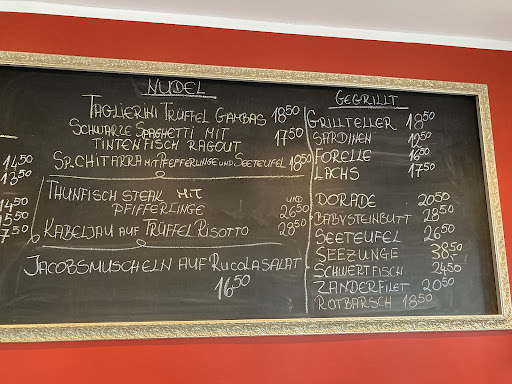 NUDEL
TAGLIERINI TRÜFFEL GAMBAS 18,50
SCHWARZE SPAGHETTI MIT
TINTENFISCH RAGOUT 17,50
SP.CHITARRA MIT PFEFFERLINGE UND SEETEUFEL 18,50
THUNFISCH STEAK MIT
PFIFFERLINGE 26,50
KABELJAU AUF TRÜFFEL RISOTTO 28,50
JACOBSMUSCHELN AUF RUCOLASALAT
16,50
14,50
13,50
14,50
15,50
7,50
GEGRILLT
GRILLTELLER 18,50
SARDINEN 12,50
FORELLE 16,50
LACHS 17,50
DORADE 20,50
BABYSTEINBUTT 28,50
SEETEUFEL 26,50
SEEZUNGE 38,50
SCHWERTFISCH 24,50
ZANDERFILET 20,50
ROTBARSCH 18,50